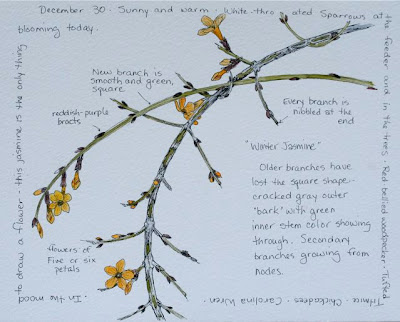 December 30 · Sunny and warm · White-thro ated Sparrows at
the feeder and in the trees · Red bellied woodpecker · Tufted
Titmice · Chickadees · Carolina Wren ·
· In the mood
to draw a flower - this jasmine is the only thing
blooming today.
New branch is
smooth and green,
square
reddish-purple
bracts
Every branch is
nibbled at the
end
"Winter Jasmine"
Older branches have
lost the square shape..
cracked gray outer
"bark" with green
inner stem color showing
through. Secondary
branches growing from
nodes.
flowers of
Five or six
petals